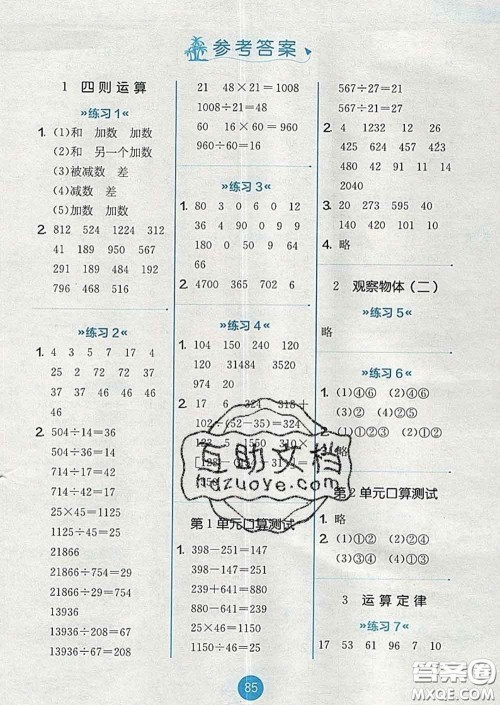 参考答案
1 四则运算
»练习1«
1. (1)和 加数 加数
(2)和 另一个加数
(3)被减数 差
(4)减数 差
(5)加数 加数
2. 812 524 1224 312
41 189 990 567
291 189 484 192
796 468 516
»练习2«
1. 4 3 5 7 17 4
25 2 72 17 37
20 11 40 4
2. 504÷14=36
504÷36=14
714÷17=42
714÷42=17
25×45=1125
1125÷45=25
21866
21866÷754=29
21866÷29=754
13936
13936÷208=67
13936÷67=208
21 48×21=1008
1008÷21=48
60 16×60=960
960÷60=16
»练习3«
1. 80 3 0 6 0 12
36 4 90 0 9 9
19 0 0 18 94
64 9 66
2. 4700 365 702 6
»练习4«
1. 104 150 240 120
120 31 480 1540
39480 351
974 20
2. 17 6 324 318+
102÷(52-35) =324
132 5 1550 310×
互助文档
hdzuoye.com
第1单元口算测试
1. 398-251=147
398-147=251
239+641=880
880-641=239
25×46=1150
1150÷46=25
567÷27=21
567÷21=27
2. 4 1232 12 46
425 624 457 423
480 42 91 11 14
2040
3. 20 273 595 40
140 420 101 0
4. 略
2 观察物体(二)
»练习5«
略
»练习6«
1. (1)④⑥ (2)④⑥
第2单元口算测试
1. 略
2. (1)①② (2)①②
(3)①④ (4)①②
3 运算定律
»练习7«
17 53 61 96 7 10
85
答案圈
MXQE.COM